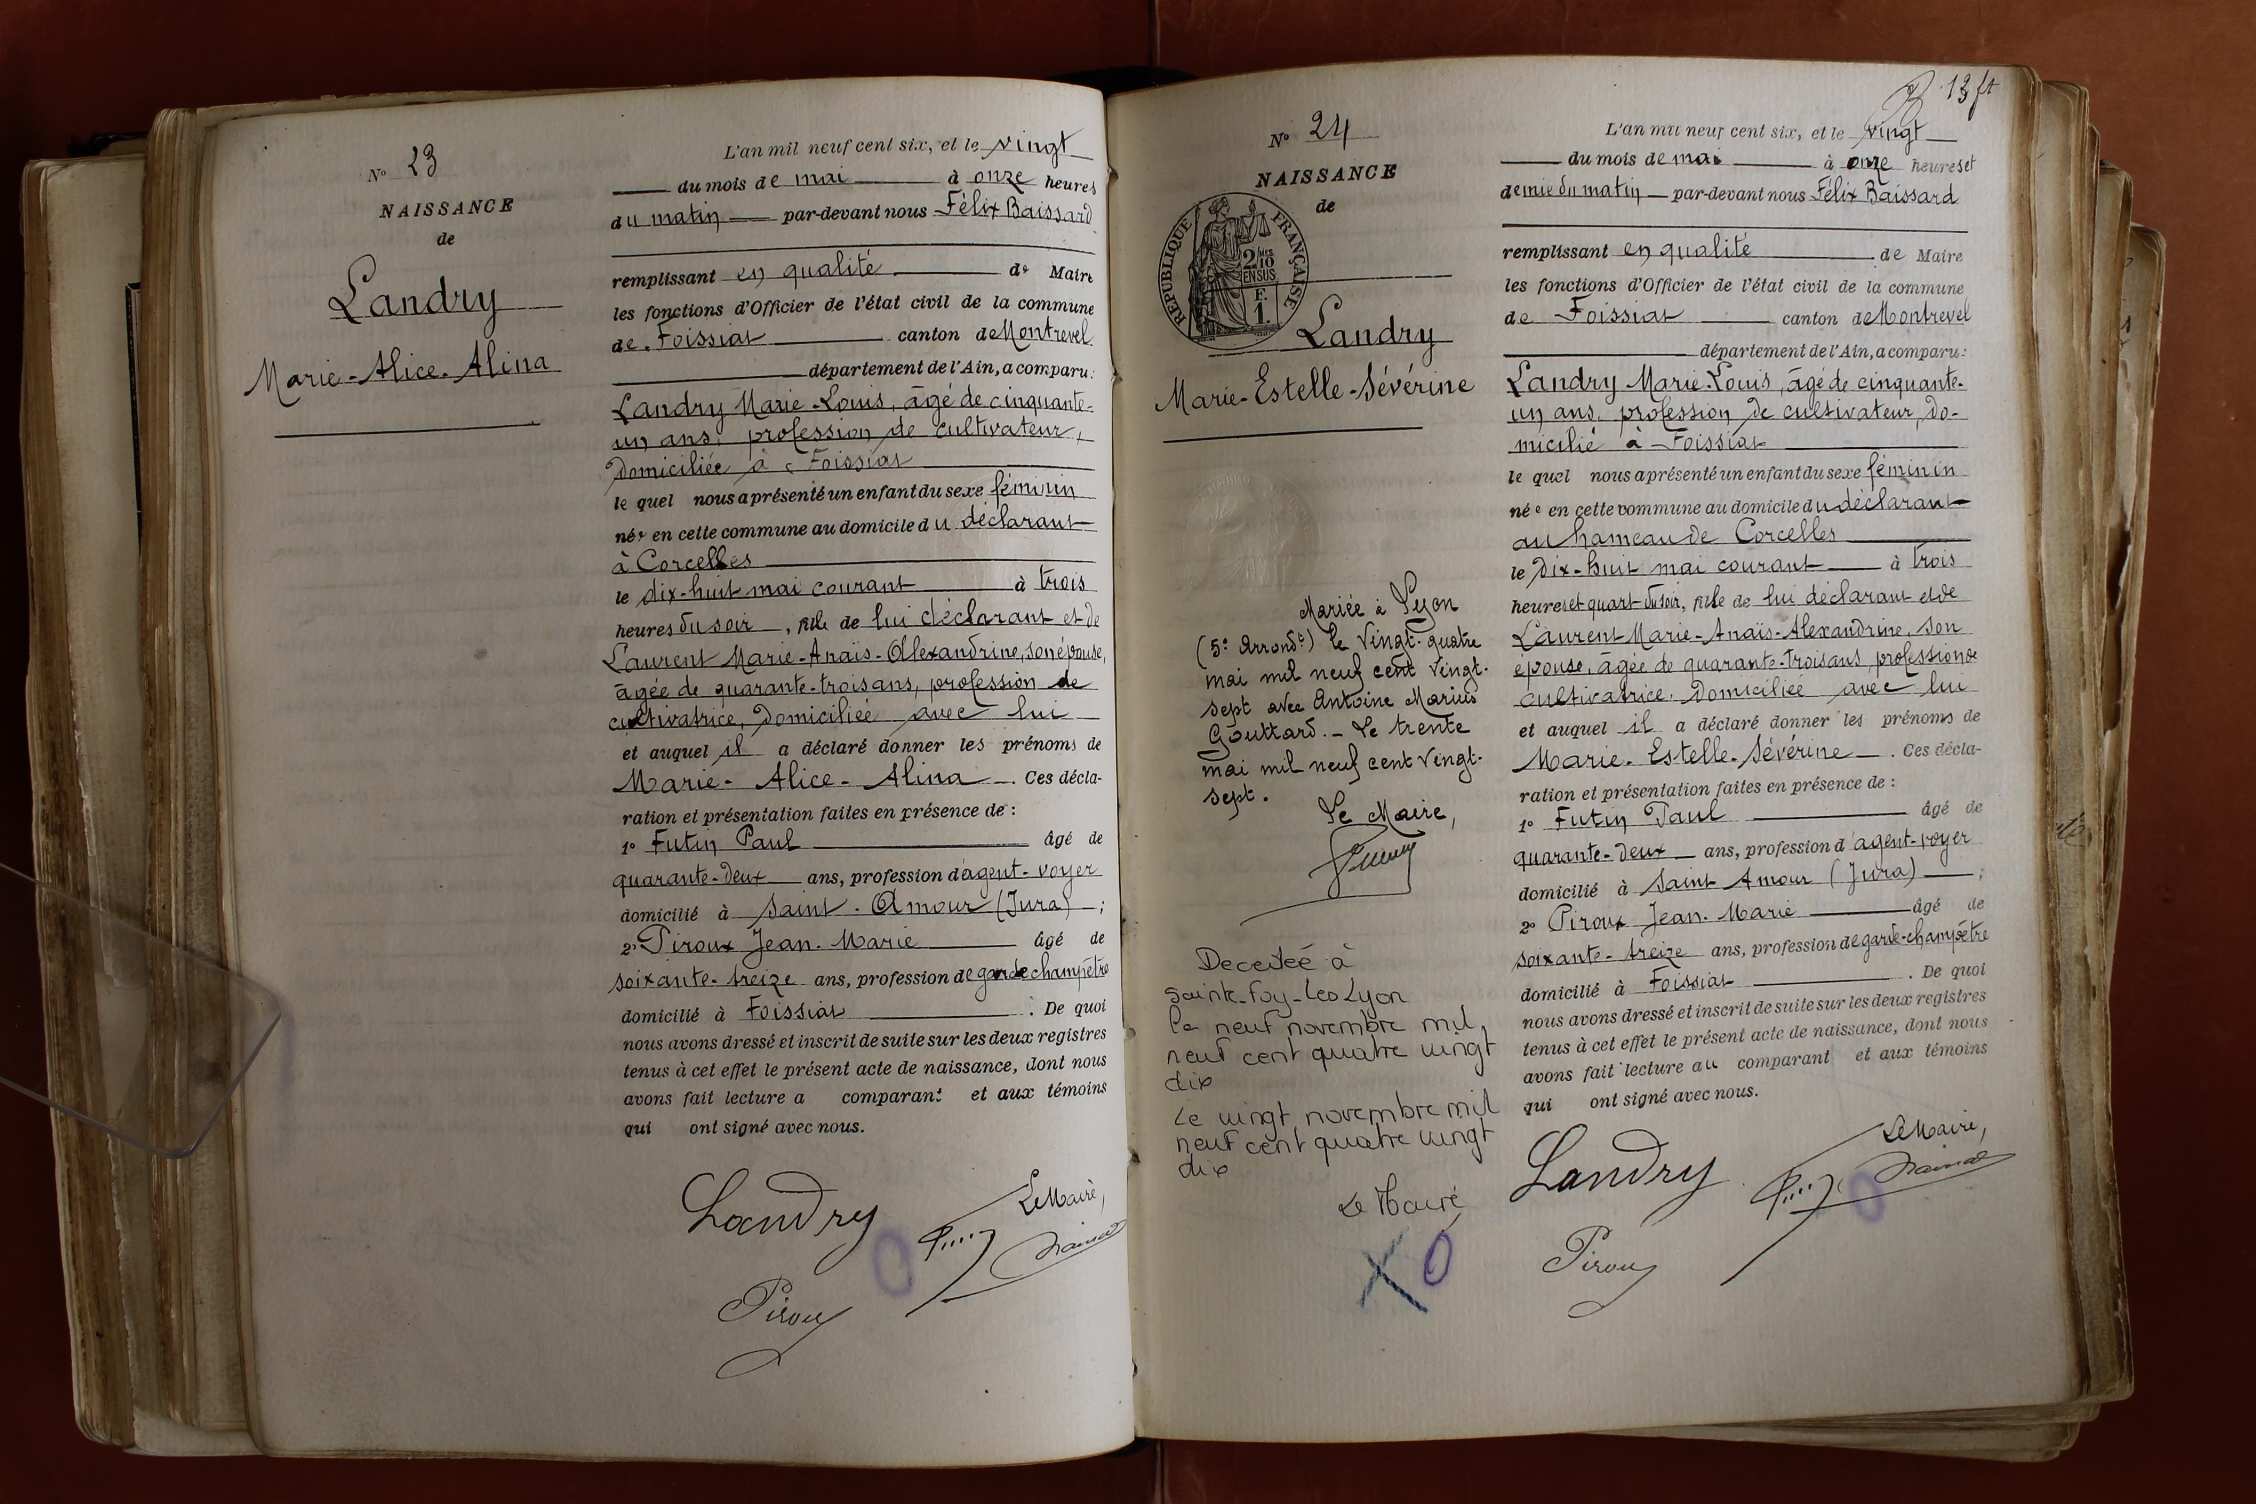 N° 23
NAISSANCE
de
Landry
Marie-Alice-Alina
L'an mil neuf cent six, et le vingt
du mois de mai à onze heures
du matin par-devant nous Félix Baissard
remplissant en qualité de Maire
les fonctions d'Officier de l'état civil de la commune
de Foissiat canton de Montrevel
département de l'Ain, a comparu:
Landry Marie-Louis, âgé de cinquante-
un ans, profession de cultivateur,
domiciliée à Foissiat
le quel nous a présenté un enfant du sexe féminin
née en cette commune au domicile du déclarant
à Corcelles
le dix-huit mai courant à trois
heures du soir, fille de lui déclarant et de
Laurent Marie-Anaïs-Alexandrine, son épouse,
âgée de quarante-trois ans, profession de
cultivatrice, domiciliée avec lui
et auquel il a déclaré donner les prénoms de
Marie-Alice-Alina. Ces décla-
ration et présentation faites en présence de:
1° Futin Paul âgé de
quarante-deux ans, profession d'agent-voyer
domicilié à Saint-Amour (Jura);
2° Piroux Jean-Marie âgé de
soixante-treize ans, profession de garde champêtre
domicilié à Foissiat. De quoi
nous avons dressé et inscrit de suite sur les deux registres
tenus à cet effet le présent acte de naissance, dont nous
avons fait lecture a comparant et aux témoins
qui ont signé avec nous.
Landry
Le Maire,
Piroux
13 ft
N° 24
NAISSANCE
de
RÉPUBLIQUE FRANÇAISE
2/10
EN SUS
F.
1.
Landry
Marie-Estelle-Sévérine
Mariée à Lyon
(5e Arrondt) le vingt-quatre
mai mil neuf cent vingt-
sept avec Antoine Marius
Gouttard. - Le trente
mai mil neuf cent vingt-
sept.
Le Maire,
Decedée à
Sainte-Foy-Les Lyon
le neuf novembre mil
neuf cent quatre vingt
dix
Le vingt novembre mil
neuf cent quatre vingt
dix
Le Maire
L'an mil neuf cent six, et le vingt
du mois de mai à onze heures et
demie du matin par-devant nous Félix Baissard
remplissant en qualité de Maire
les fonctions d'Officier de l'état civil de la commune
de Foissiat canton de Montrevel
département de l'Ain, a comparu:
Landry Marie-Louis, âgé de cinquante-
un ans, profession de cultivateur, do-
micilié à Foissiat
le quel nous a présenté un enfant du sexe féminin
née en cette commune au domicile du déclarant
au hameau de Corcelles
le dix-huit mai courant à trois
heures et quart du soir, fille de lui déclarant et de
Laurent Marie-Anaïs-Alexandrine, son
épouse, âgée de quarante-trois ans, profession de
cultivatrice, domiciliée avec lui
et auquel il a déclaré donner les prénoms de
Marie-Estelle-Sévérine. Ces décla-
ration et présentation faites en présence de:
1° Futin Paul âgé de
quarante-deux ans, profession d'agent-voyer
domicilié à Saint Amour (Jura);
2° Piroux Jean-Marie âgé de
soixante-treize ans, profession de garde-champêtre
domicilié à Foissiat. De quoi
nous avons dressé et inscrit de suite sur les deux registres
tenus à cet effet le présent acte de naissance, dont nous
avons fait lecture au comparant et aux témoins
qui ont signé avec nous.
Landry
Le Maire,
Piroux